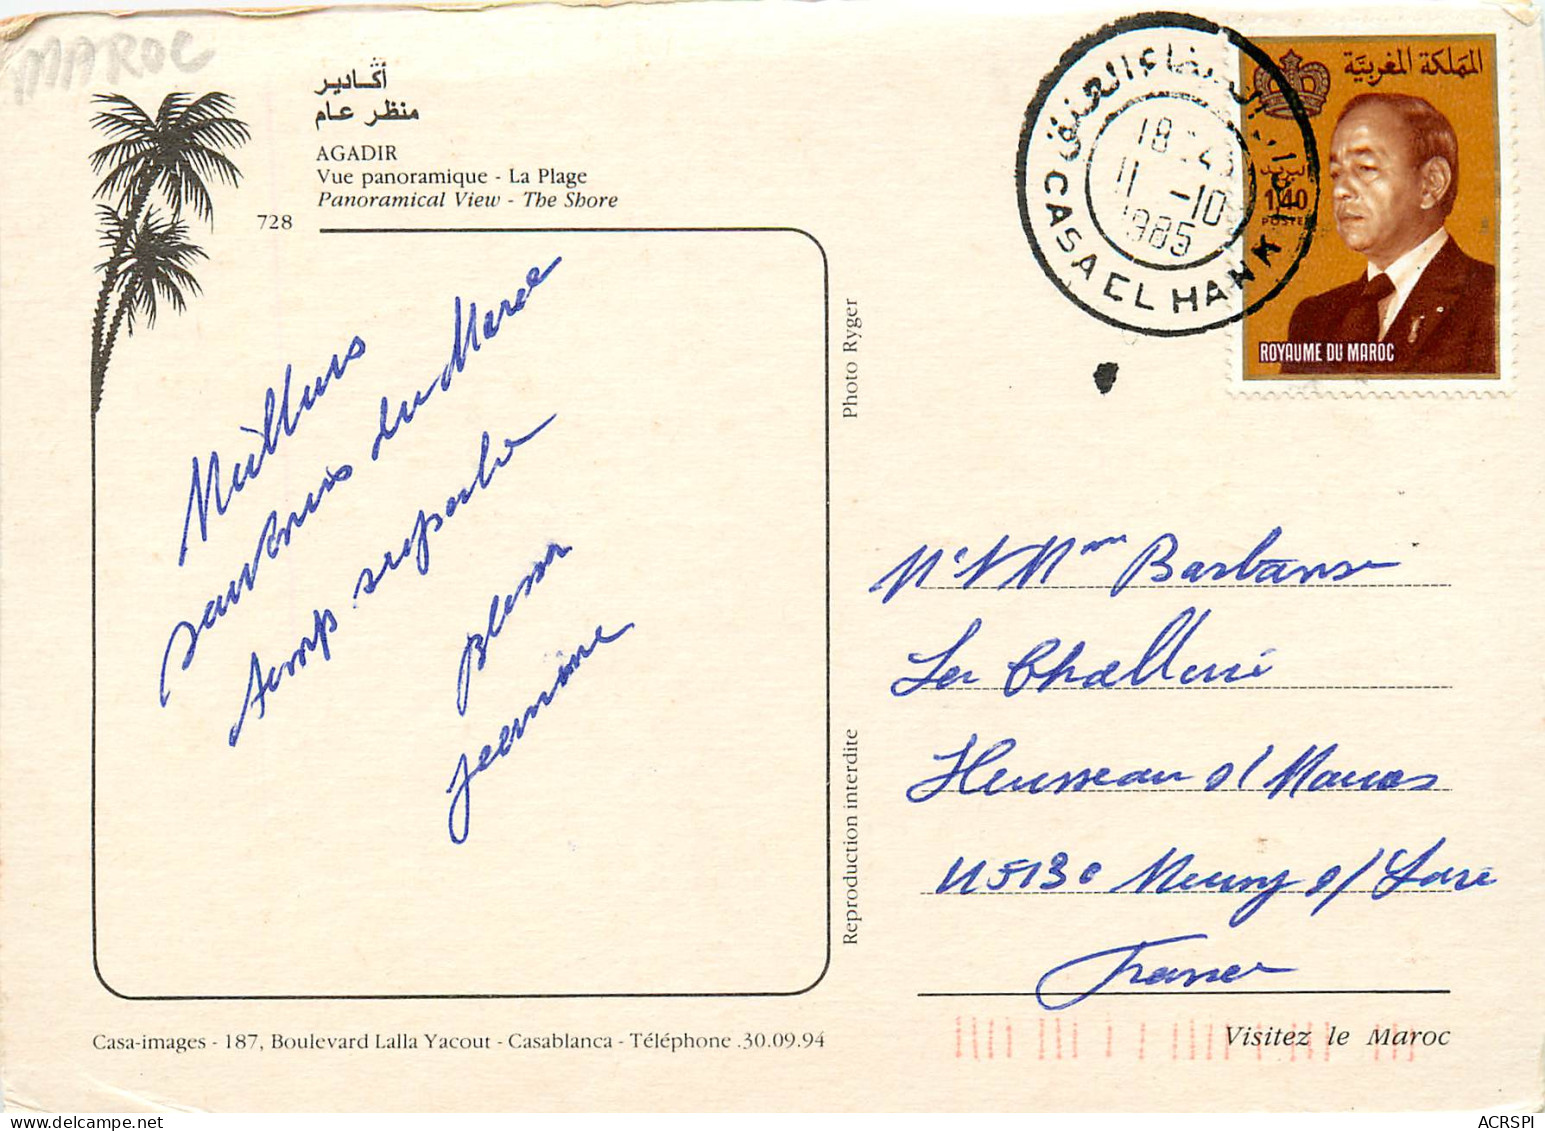 MAROC
أگادير
منظر عام
AGADIR
Vue panoramique - La Plage
Panoramical View - The Shore
728
Meilleurs
souvenirs du Maroc
temp superbe
Jeannine
Photo Ryger
Reproduction interdite
الدار البيضاء العنق
18
11 -10
1985
CASA EL HANK
المملكة المغربية
البريد
1,40
POSTES
ROYAUME DU MAROC
Mr Mme
45130 Meung s/ Loire
France
Casa-images - 187, Boulevard Lalla Yacout - Casablanca - Téléphone .30.09.94
Visitez le Maroc
ACRSPI